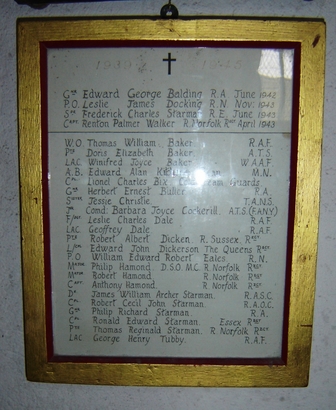 Gnr Edward George Balding R.A. June 1942
P.O. Leslie James Docking R.N. Nov. 1943
Frederick Charles Starman R.E. June 1943
Capt Renton Palmer Walker R. Norfolk Regt April 1943
W.O. Thomas William Baker. R.A.F.
Pte Doris Elizabeth Baker. A.T.S.
LAC Winifred Joyce Baker W.A.A.F.
A.B. Edward Alan M.N.
Lionel Charles Guards.
Herbert Ernest R.A.
Jessie Christie. T.A.N.S.
Comd: Barbara Joyce Cockerill. A.T.S (F.A.N.Y.)
Leslie Charles Dale R.A.F.
LAC Geoffrey Dale R.A.F.
Pte Robert Albert Dicken. R. Sussex. Regt
Edward John Dickerson The Queens Regt
P.O William Edward Robert Eales R.N.
Philip Hamond. D.S.O. M.C. R. Norfolk Regt
Robert Hamond. R. Norfolk Regt
Capt Anthony Hamond. R. Norfolk Regt
James William Archer Starman. R.A.S.C.
Robert Cecil John Starman. R.A.O.C.
Philip Richard Starman. R.A.
Ronald Edward Starman. Essex Regt
Pte Thomas Reginald Starman. R. Norfolk Regt
LAC George Henry Tubby. R.A.F.